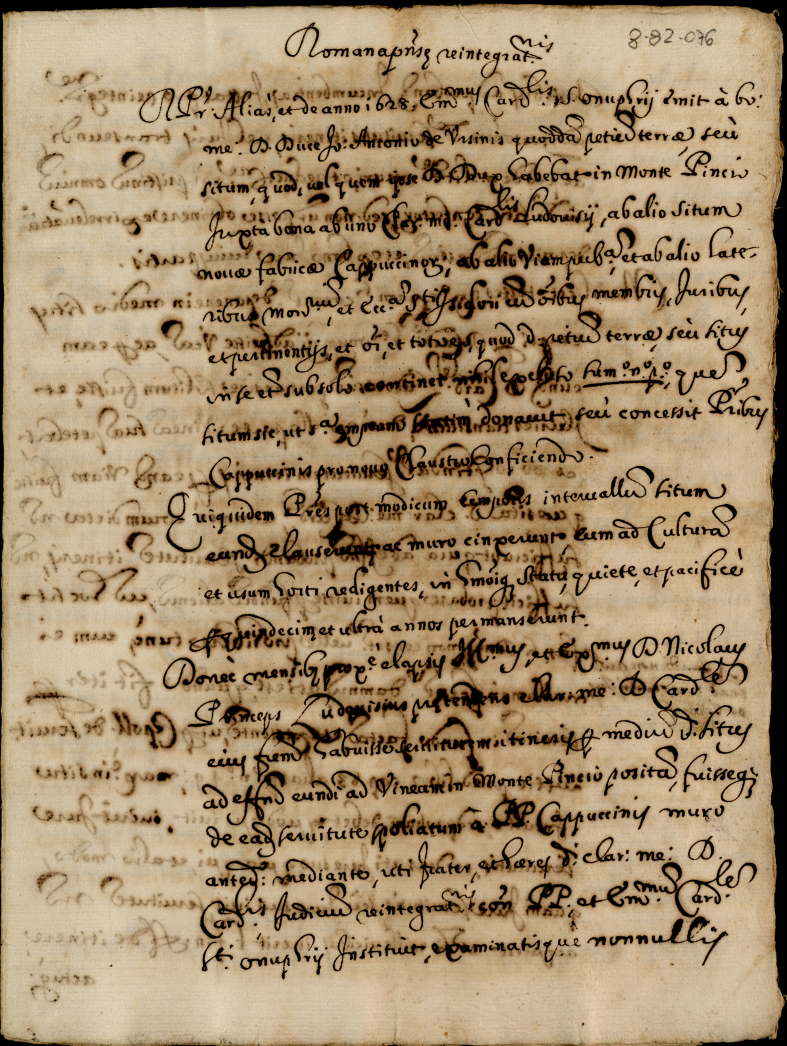 8-82-076
Romana prns̃ę reintegrat.nis
R. P.r Alias, et de anno 1628. Em.mus Card.lis S. Onuphrij emit à bo:
me: D. Duce Jo: Antonio de Vrsinis quoddã petiũ terræ, seù
situm, quod, vel quem ipse D. Dux habebat in Monte Pincio
Juxta bona ab uno Clar: me: Card.lis Ludouisij, ab alio situm
nouæ fabricæ Capuccinor;, ab alio Viam pub.ã et ab alio late-
ribus et cũ oĩbus membris, Juribus,
et pertinentijs, et oĩ, et toto eo, quod d. petiũ terræ seù situs
in se et subsolo continet nihil excepto sum.o n.o p.o, quẽ
situm sic, ut s.a emptum donauit seù concessit Pribus
Cappuccinis pro nouo Claustro conficiendo.
Quiquidem Pres post modicum temporis interuallũ situm
eund; clauserunt, ac muro cinxerunt, eum ad Culturã
et usum horti redigentes, in statu, quiete, et pacificè
quindecim, et ultrà annos permanserunt.
Donec mensib; prox.è elapsis Ill.mus, et Exc.mus D. Nicolaus
Princeps Ludouisius prætendens clar: me: D. Card.le
eius frem habuisse seruitutem itineris medium d. situs
ad effm̃ eundi ad Vineam in Monte Pincio positã, fuisseq;
de eaq; seruitute spoliatum à PP. Cappuccinis muro
anted.: mediante, uti frater, et hæres d. clar: me: D.
Card.lis Judiciũ reintegrat.nis con PP., et Em.mũ Card.le
S.ti Onuphrij Instituit, examinatisquè nonnullis